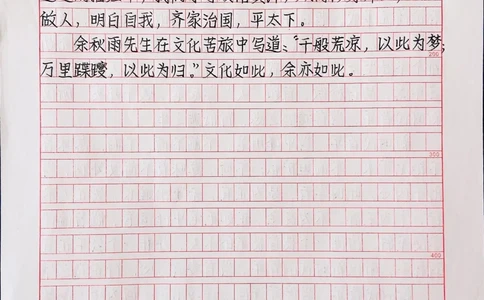 做人，明白自我，齐家治国，平太下。
余秋雨先生在文化苦旅中写道、“千般荒凉，以此为梦；
万里蹀躞，以此为归。”文化如此，余亦如此。
200
300
400